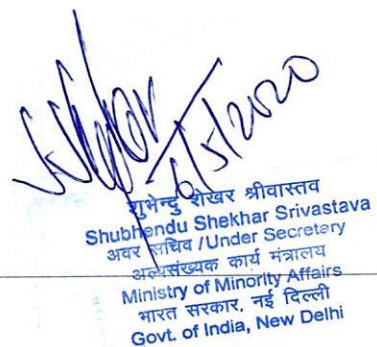 6/5/2020
शुभेन्दु शेखर श्रीवास्तव
Shubhendu Shekhar Srivastava
अवर सचिव /Under Secretary
अल्पसंख्यक कार्य मंत्रालय
Ministry of Minority Affairs
भारत सरकार, नई दिल्ली
Govt. of India, New Delhi